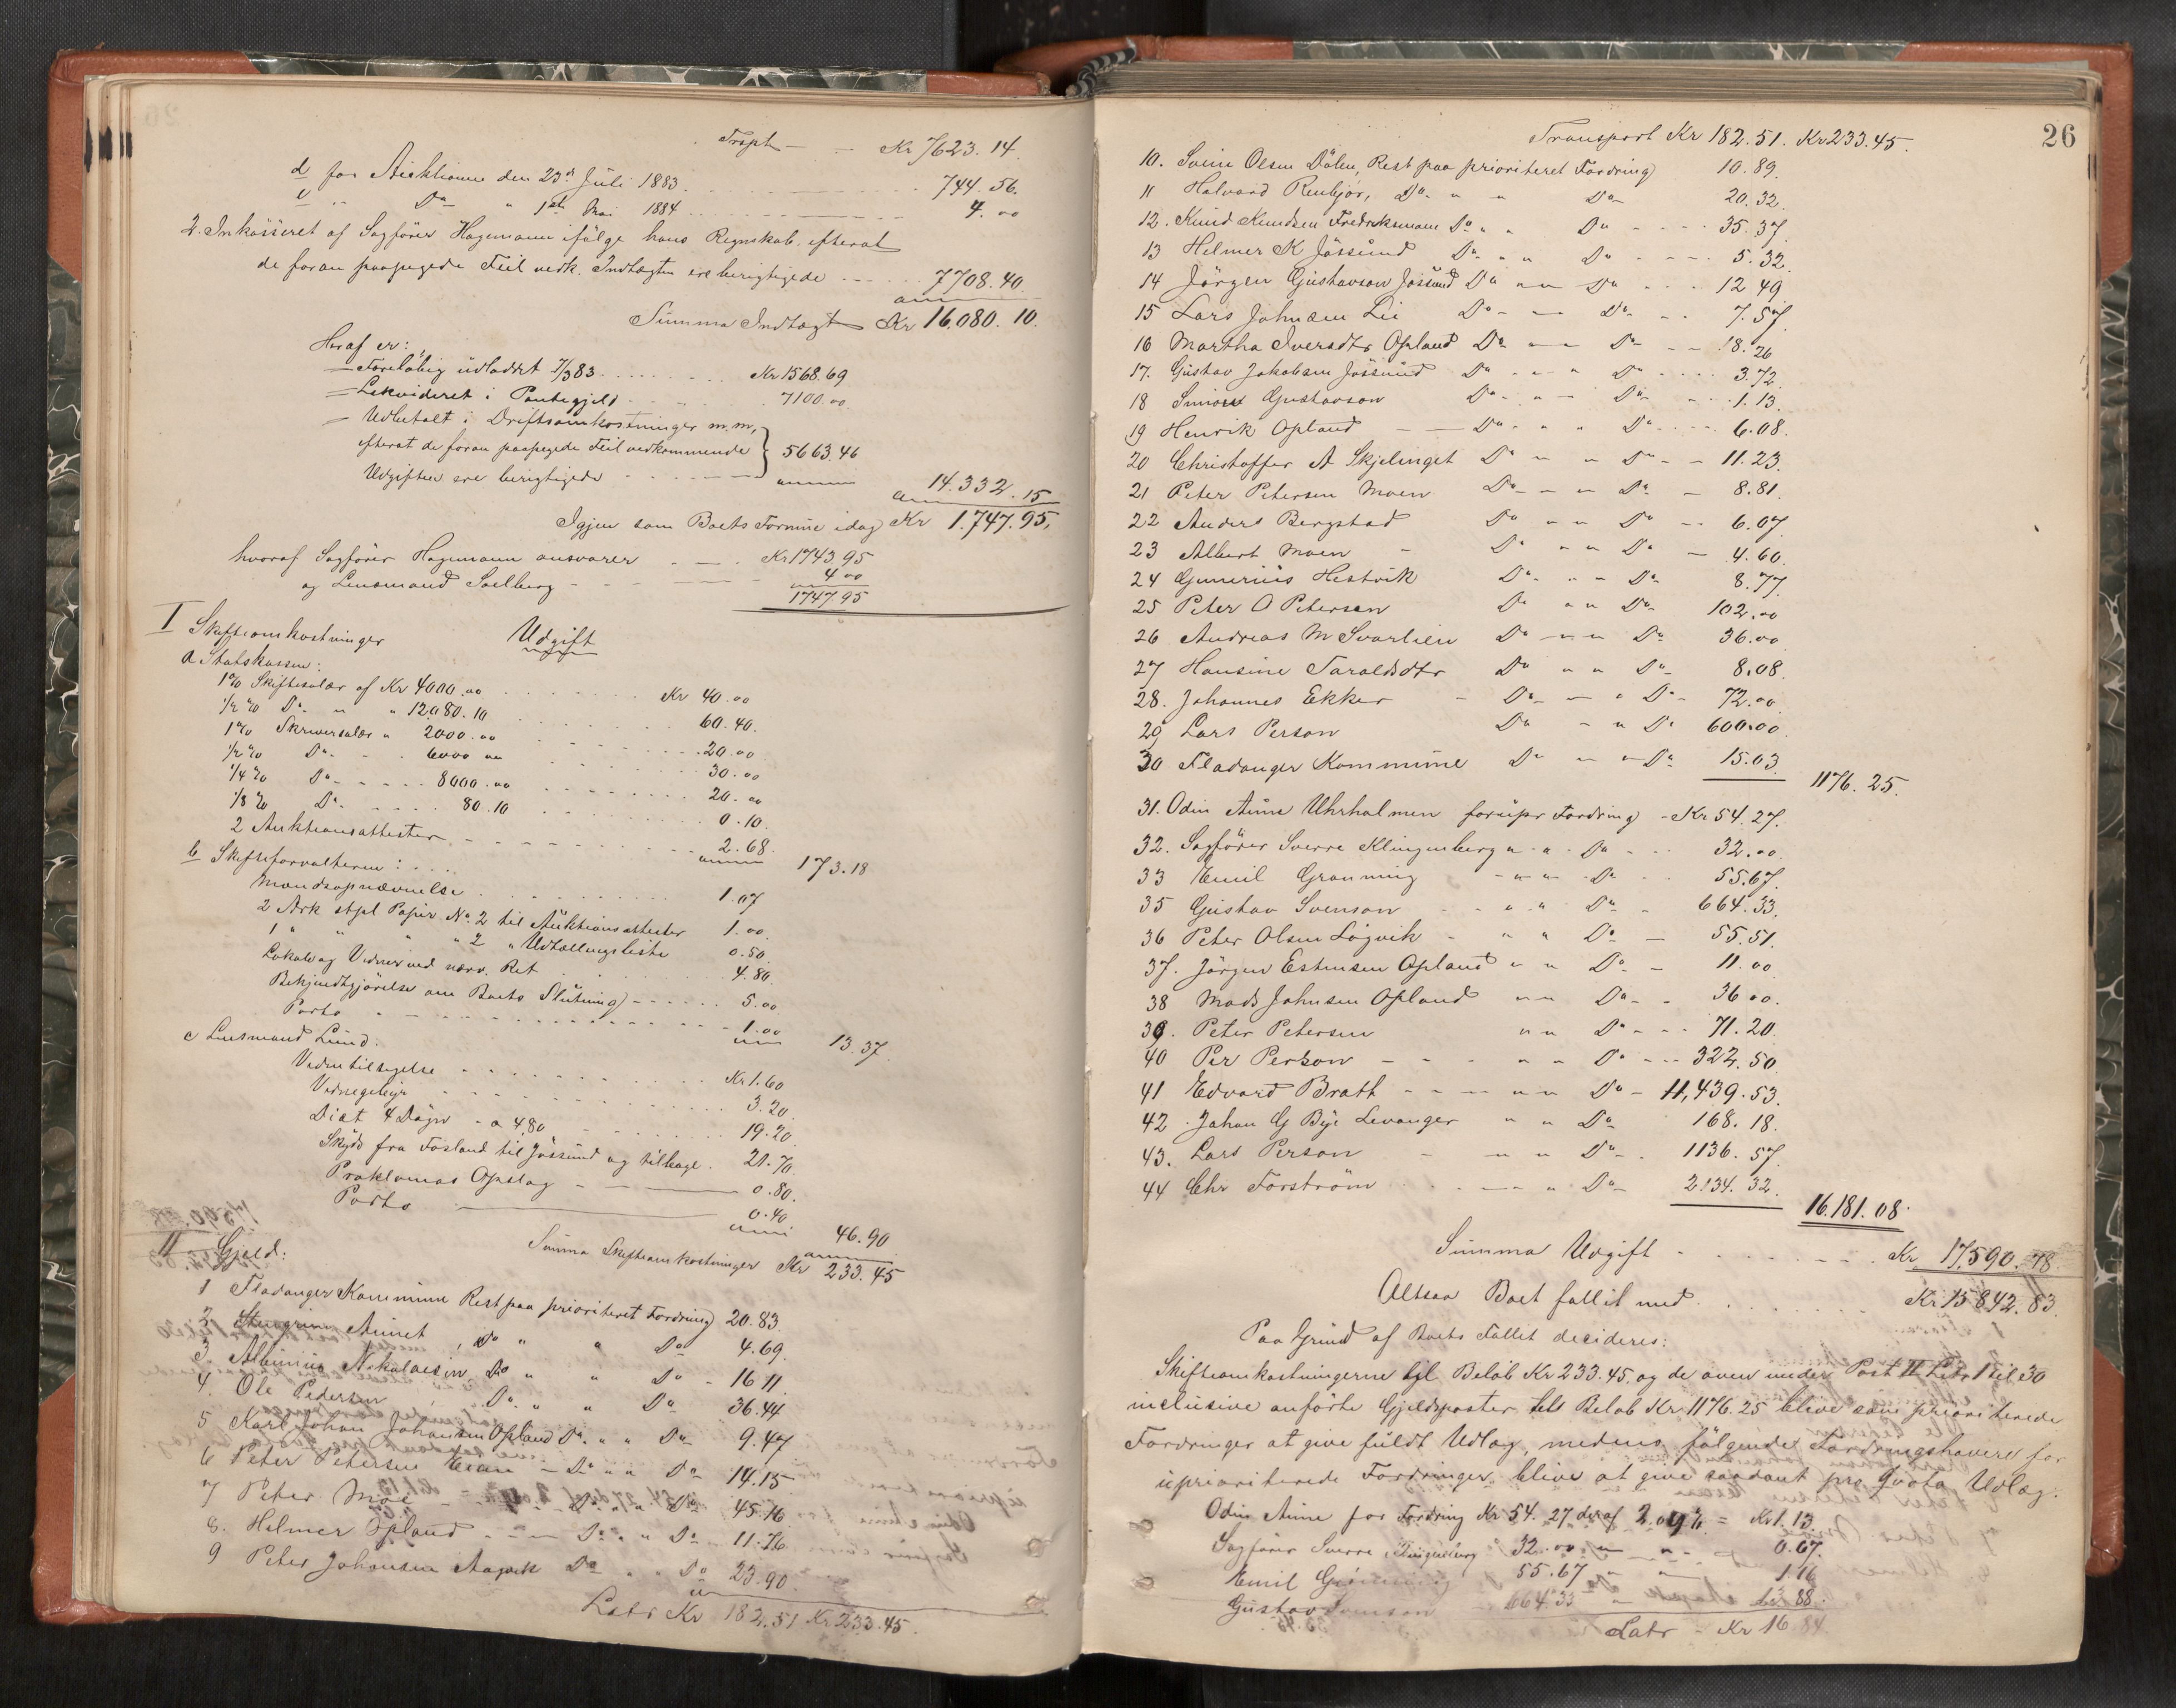 Trspt — — Kr 7623.14.
d for Auktionen den 23de Juli 1883 744.56.
e " Do " 1ste Mai 1884 4.00
2. Inkasseret af Sagfører Hagemann ifølge hans Regnskab, efterat
de foran paapegede Feil vedk. Indtægten ere berigtigede 7708.40
Summa Indtægt Kr 16,080.10.
Heraf er:
Foreløbig udloddet 7/3 83 Kr 1568.69
Likvideret i Pantegjeld 7100.00
Udbetalt i Driftsomkostninger m.m,
efterat de foran paapegede Feil vedkommende 5663.46
Udgiften ere berigtigede
14.332.15
Igjen som Boets Formue idag Kr 1.747.95,
hvoraf Sagfører Hagemann ansvarer Kr 1743.95
og Lensmand Soelberg 4.00
1747.95
Udgift
I Skifteomkostninger
a Statskassen:
1% Skiftesalær af Kr 4000.00 Kr 40.00
1/2 % Do " " 12080.10 60.40.
1% Skriversalær " 2000.00 20.00
1/2 % Do 6000 00 30.00
1/4 % Do 8000.00 20.00
1/8 % Do 80.10 0.10.
2 Auktionsattester 2.68. 173.18
b Skifteforvalteren:
Mandsopnævnelse 1.07
2 Ark stpl Papir No. 2 til Auktionsattester 1.00.
1 " " " " 2 " Udtællingsliste 0.50.
Lokale og Vidner ved nærv. Ret 4.80.
Bekjendtgjørelse om Boets Slutning 5.00
Porto 1.00 13.37.
c Lensmand Lund:
Vidnetilsigelse Kr 1.60
Vidnegebyr 3.20.
Diæt 4 Døgn a 4,80 19.20.
Skyds fra Fosland til Jøssund og tilbage 21.70.
Proklamas Opslag 0.80.
Porto 0.40 46.90
Summa Skifteomkostninger Kr 233.45
II Gjeld:
1 Fladanger Kommune Rest paa prioriteret Fordring 20.83.
2 Steingrim Aunet, Do " " Do 4.69.
3. Albinius Nikolaisen, Do " " Do 16 11.
4. Ole Pedersen Do " " Do 36.44
5 Karl Johan Johansen Opland Do " " Do 9.47
6 Peter Petersen Do " " Do 14.15
7 Peter Moe Do " " Do 45.16
8. Helmer Opland Do " " Do 11.76
9 Peter Johansen Do " " Do 23.90
Latr Kr 182.51 Kr 233.45.
26
Transport Kr 182.51. Kr 233.45.
10. Svein Olsen Dølen, Rest paa prioriteret Fordring 10.89.
11 Halvard Reubjør, Do " " Do 20.32.
12. Knud Knudsen Fredriksmoen Do " " Do 35.37
13 Helmer K Jøssund Do " " Do 5.32.
14 Jörgen Gustavson Jøssund Do " " Do 12 49
15 Lars Johnsen Lii Do — — Do 7.57.
16 Martha Iversdtr Opland Do — — Do 18.26
17. Gustav Jakobsen Jøssund Do " " Do 3.72.
18 Simon Gustavson Do " — Do 1.13.
19 Henrik Opland Do " " Do 6.08.
20 Christoffer A Skjelinget Do " " Do 11.23.
21 Peter Petersen Moen Do — " Do 8.81.
22 Anders Bergstad Do " " Do 6.07
23 Albert Moen Do " " Do 4.60.
24 Gunerius Hestvik Do " — Do 8.77.
25 Peter O Petersen Do " " Do 102.00
26 Andreas M Svarlien Do — " Do 36.00
27 Hansine Taraldsdtr Do " " Do 8.08.
28. Johannes Ekker Do — " Do 72.00.
29 Lars Person Do — " Do 600.00
30 Fladanger Kommune Do — " Do 15.03. 1176.25.
31. Odin Aune Uhrholmen for upr Fordring Kr 54.27.
32. Sagfører Sverre Klingenberg " " Do 32.00.
33 Emil Grønning " " Do 55.67.
35 Gustav Svenson " " Do 664.33.
36 Peter Olsen Løgvik " " Do 55.51.
37. Jørgen Estensen Opland " " Do 11.00.
38 Mads Johnsen Opland " " Do 36 00.
39. Peter Petersen " " Do 71.20.
40 Per Person " " Do 322.50.
41 Edvard Bratt " " Do 11,439.53.
42. Johan G Bye Levanger " " Do 168.18.
43. Lars Person " " Do 1136.57.
44 Chr Forström — " Do 2134.32. 16.181.08.
Summa Udgift Kr 17,590.78.
Altsaa Boet fallit med Kr 15842.83.
Paa Grund af Boets Fallit decideres:
Skifteomkostningerne tgl Beløb Kr 233.45. og de oven under Post II Litr 1 til 30
inclusive anførte Gjeldsposter tils Beløb Kr 1176.25 blive som prioriterede
Fordringer at give fuldt Udlæg, medens følgende Fordringshavere for
uprioriterede Fordringer blive at give saadant pro Qvota Udlæg:
Odin Aune for Fordring Kr 54.27 deraf 2.09% = Kr 1.13.
Sagfører Sverre Klingenberg " 32.00 " " 0.67.
Emil Grønning 55.67 " 1.16
Gustav Svenson 664 33 " 13.88.
Latr - Kr 16.84